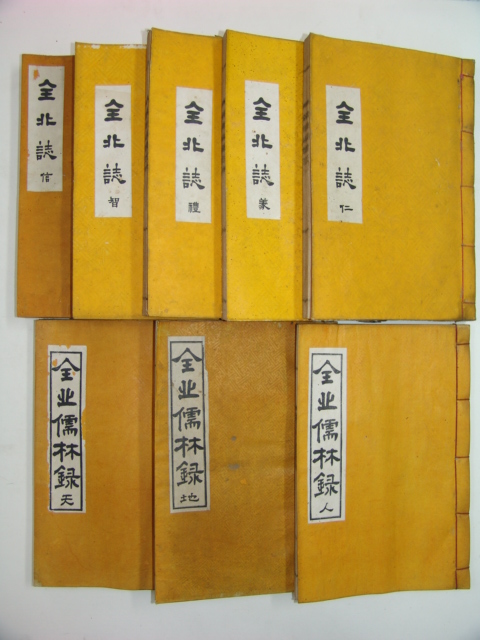 全北誌 仁
全北誌 義
全北誌 禮
全北誌 智
全北誌 信
全北儒林録 人
全北儒林録 地
全北儒林録 天